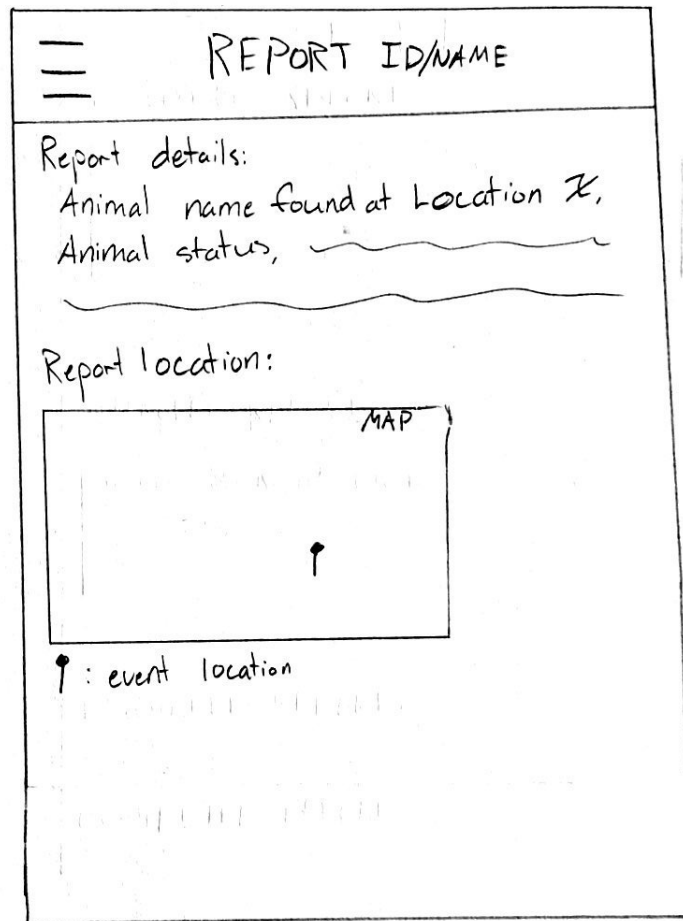 REPORT ID/NAME
Report details:
Animal name found at Location X,
Animal status,
Report location:
MAP
: event location